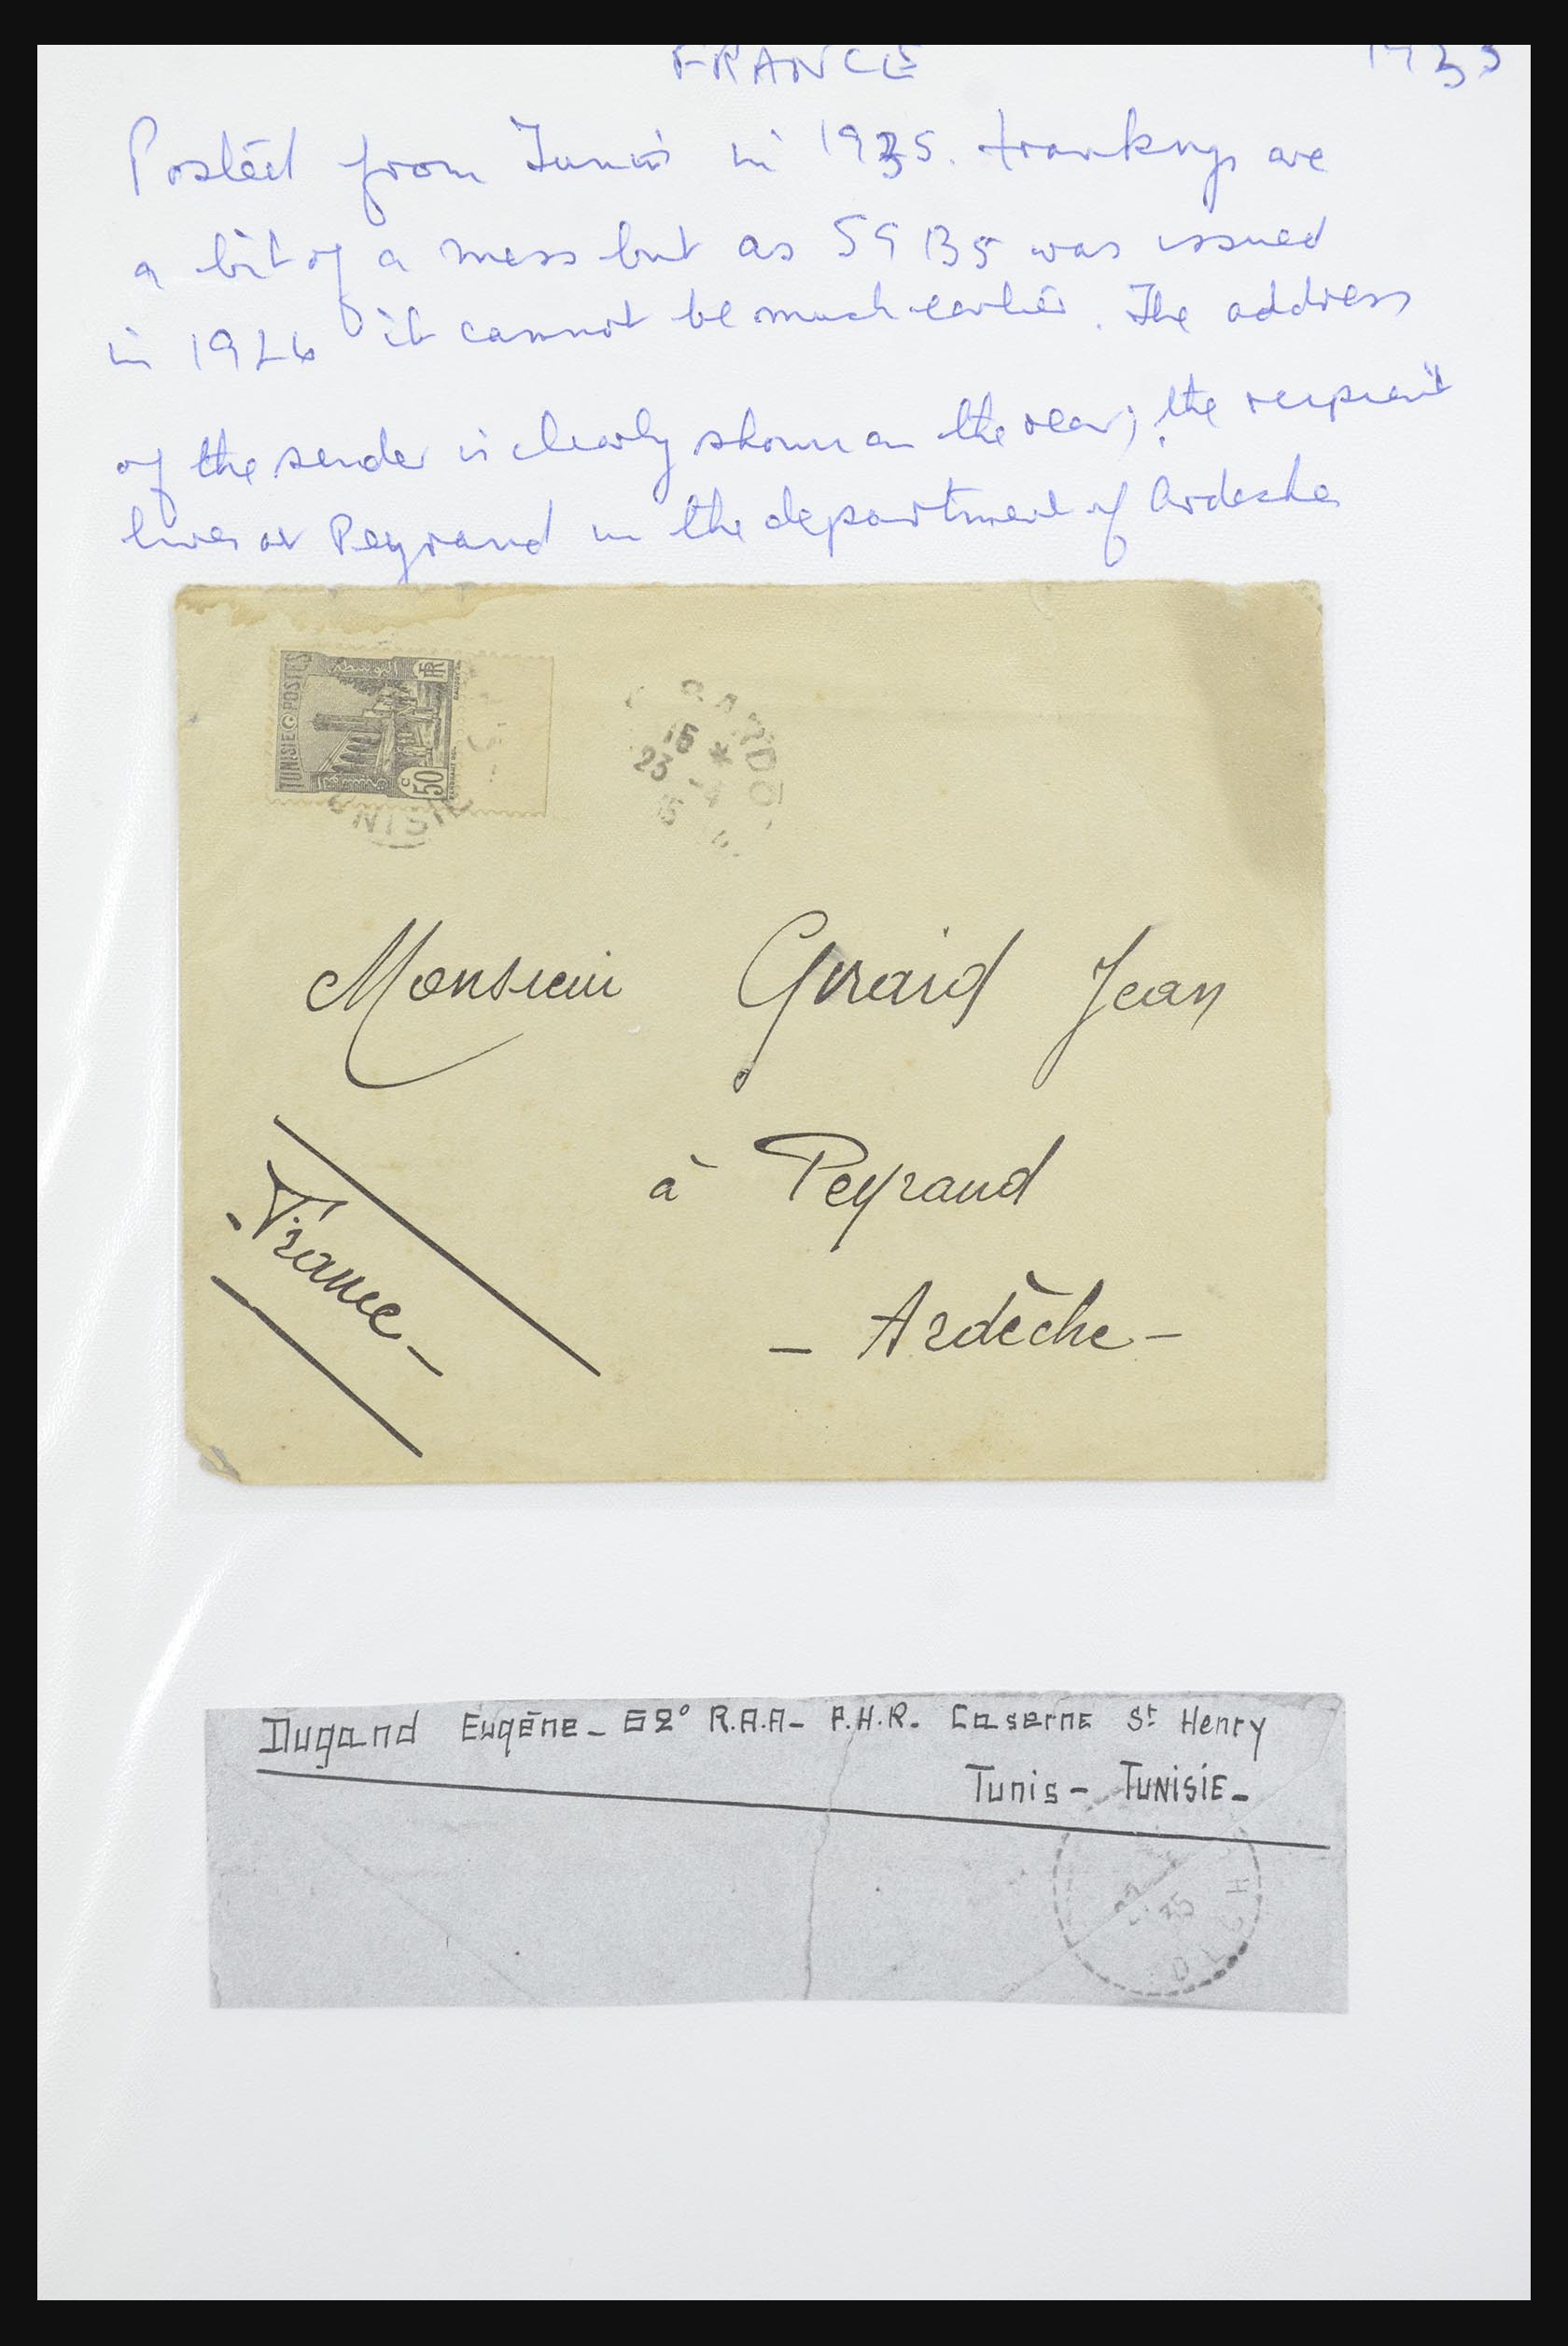 FRANCE 1935
Posted from Tunis in 1935. frankings are
a bit of a mess but as SG 135 was issued
in 1926 it cannot be much earlier. The address
of the sender is clearly shown on the rear; the recipient
lives at Peyraud in the department of Ardeche
TUNISIE POSTES
RF
50 c
TUNISIE
BARDO
15 *
23 -4
Monsieur Girard Jean
à Peyraud
- Ardèche -
- France -
Dugand Eugène - 62° R.A.A - P.H.R. Caserne St Henry
Tunis - TUNISIE -
35